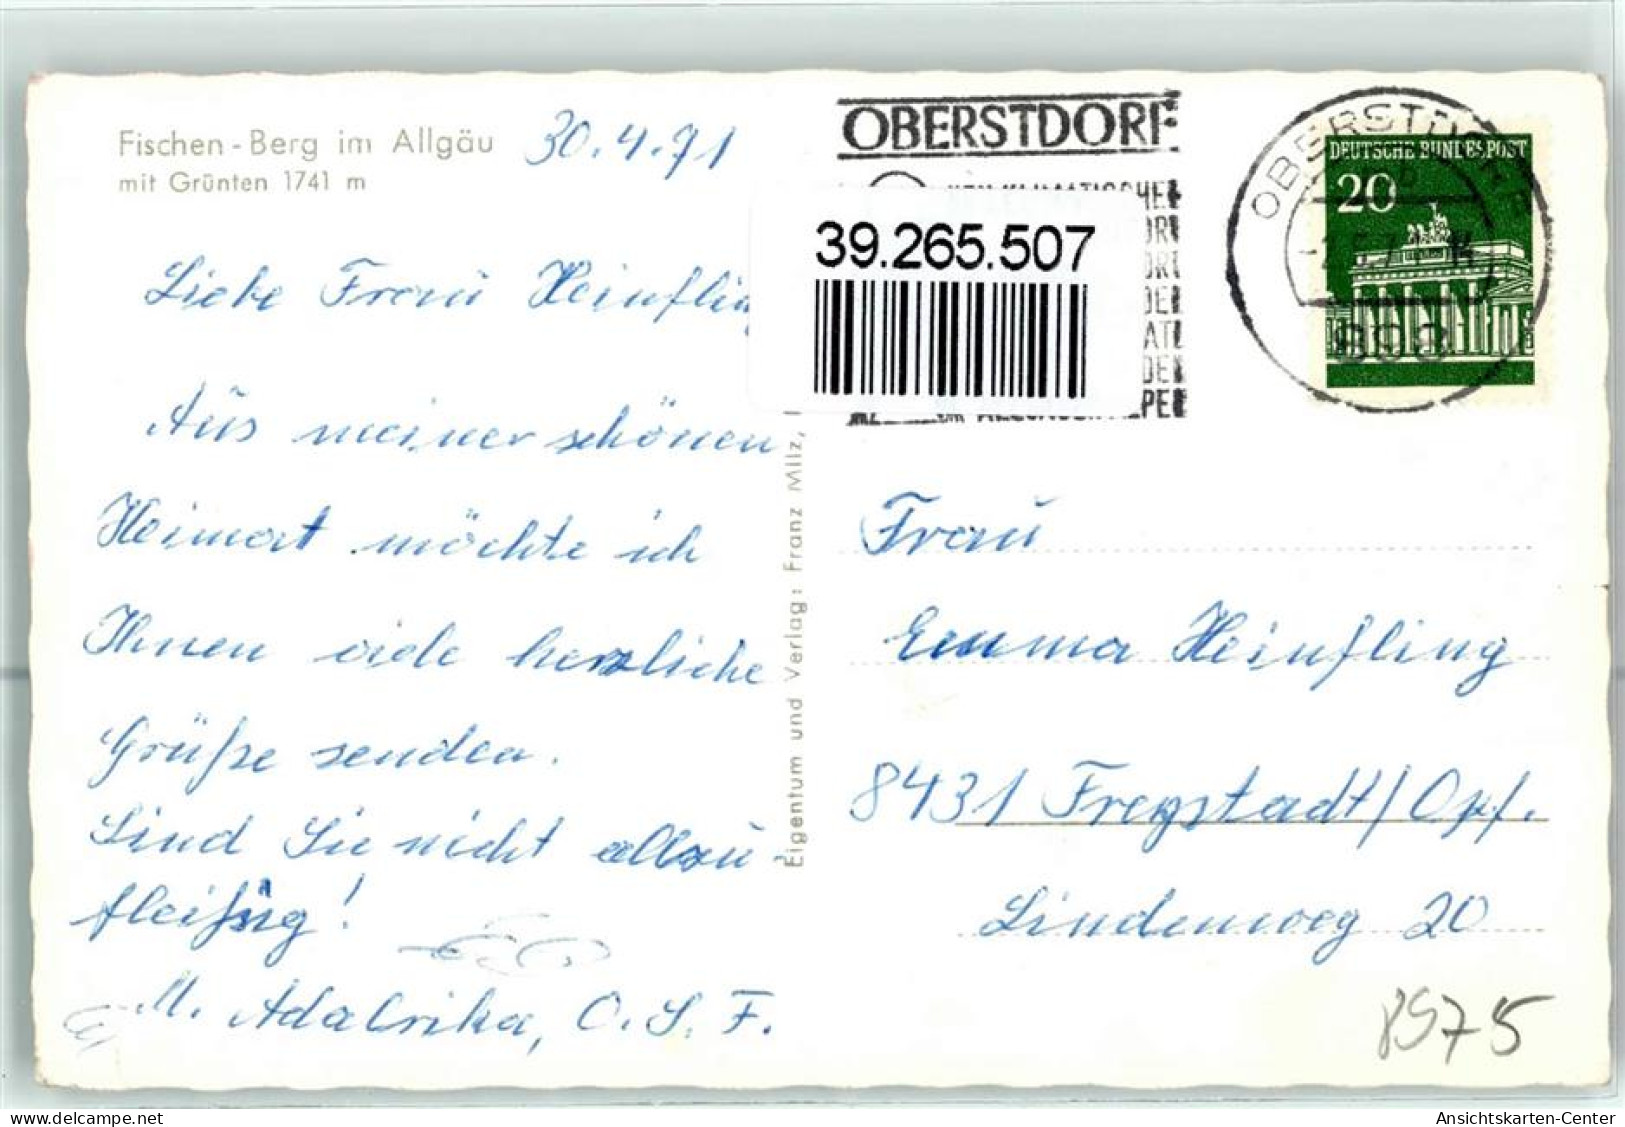 Fischen-Berg im Allgäu
mit Grünten 1741 m
30.4.71
Liebe Frau Heinfling
Aus meiner schönen
Heimat möchte ich
Ihnen viele herzliche
Grüße senden.
Sind Sie nicht allzu
fleißig!
M. Adalrika, O.S.F.
Eigentum und Verlag: Franz Milz,
OBERSTDORF
39.265.507
OBERSTDORF
DEUTSCHE BUNDESPOST
20
898
Frau
Emma Heinfling
8431 Freystadt/Opf.
Lindenweg 20
8575
Ansichtskarten-Center